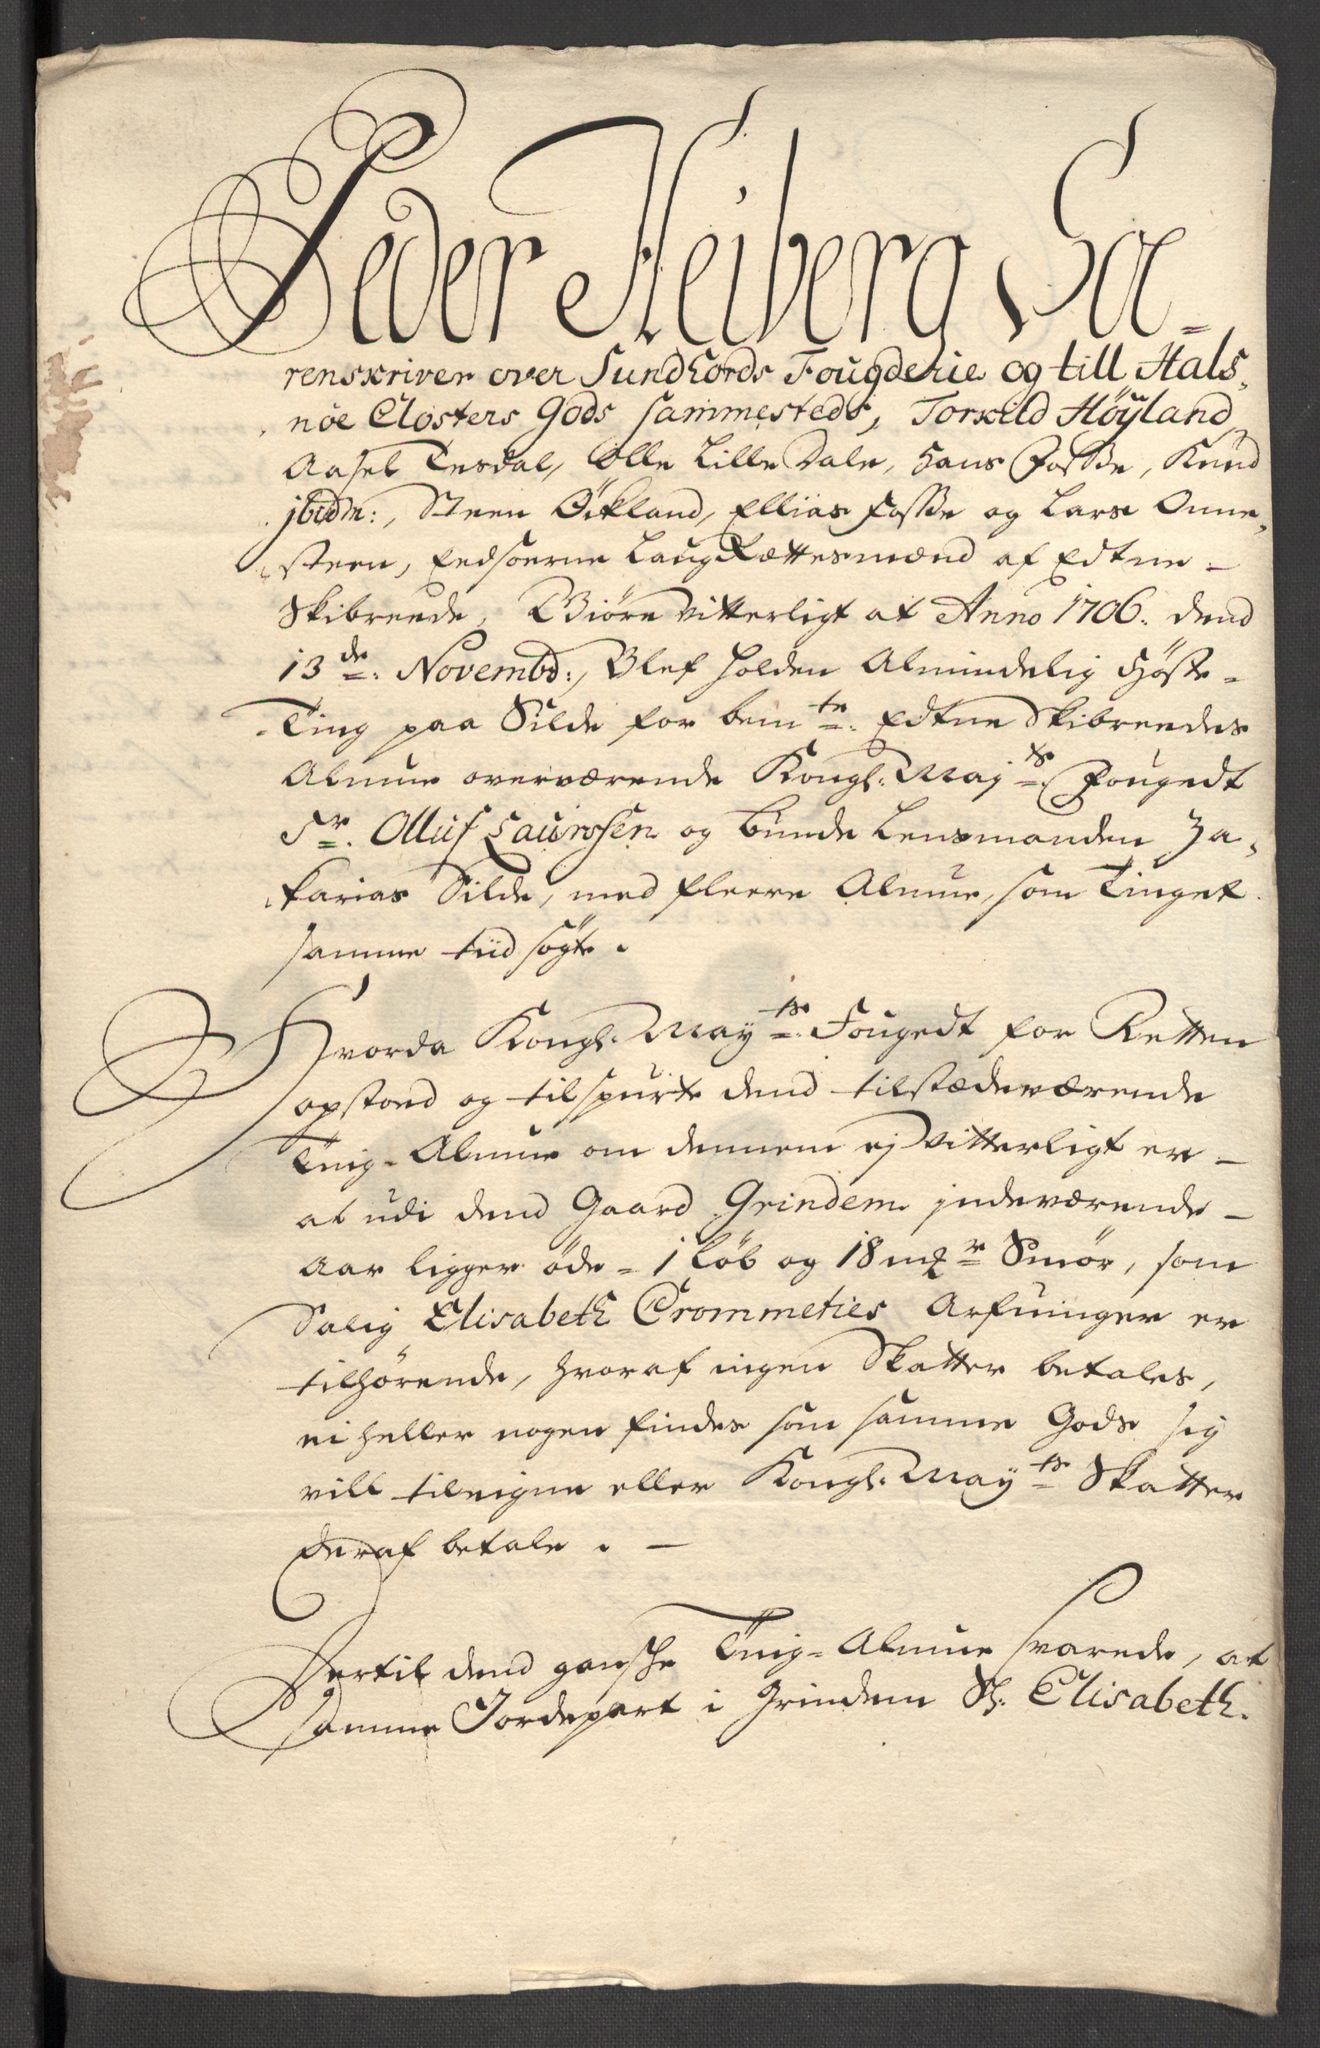 Peder Heiberg So-
renskriver over Sundhords Fougderie og till Hals-
nöe Closters Gods sammesteds, Torkild Höyland
Aasel Tesdal, Olle Lille Dale, Hans Fosse, Knud
jbidm:, Steen Öikland, Ellias Fosse og Lars Onne-
steen, Eedsoerne LaugRættesmænd af Edtne-
Skibreede, Giöre vitterligt at Anno 1706. dend
13de. Novembd:, Blef holden Almindelig Höste-
Ting paa Silde for bemte. Edtne Skibreedes
Almue overværende Kongl: Majts. Fougedt
Sr. Olluf Laurssen og Bunde Lensmanden Za-
karias Silde, med fleere Almue, som Tinget
samme tiid søgte.
Hvorda Kongl: Mayts. Fougedt for Retten
opstoed og tilspurte dend tilstædeværende
Ting-Almue om dennem ej vitterligt er-
at udi dend Gaard Grindem indeværende-
Aar ligger øde- 1 Løb og 18 mkr Smør, som
Salig Elisabeth Crommeties Arfuinger er
tilhørende, hvoraf ingen Skatter betales,
ei heller nogen findes som samme Gods sig
vill tileigne eller Kongl: Mayts Skatter
deraf betale. -
Hertil dend gansche Ting-Almue svarede, at
samme Jordepart i Grindem Sl. Elisabeth.